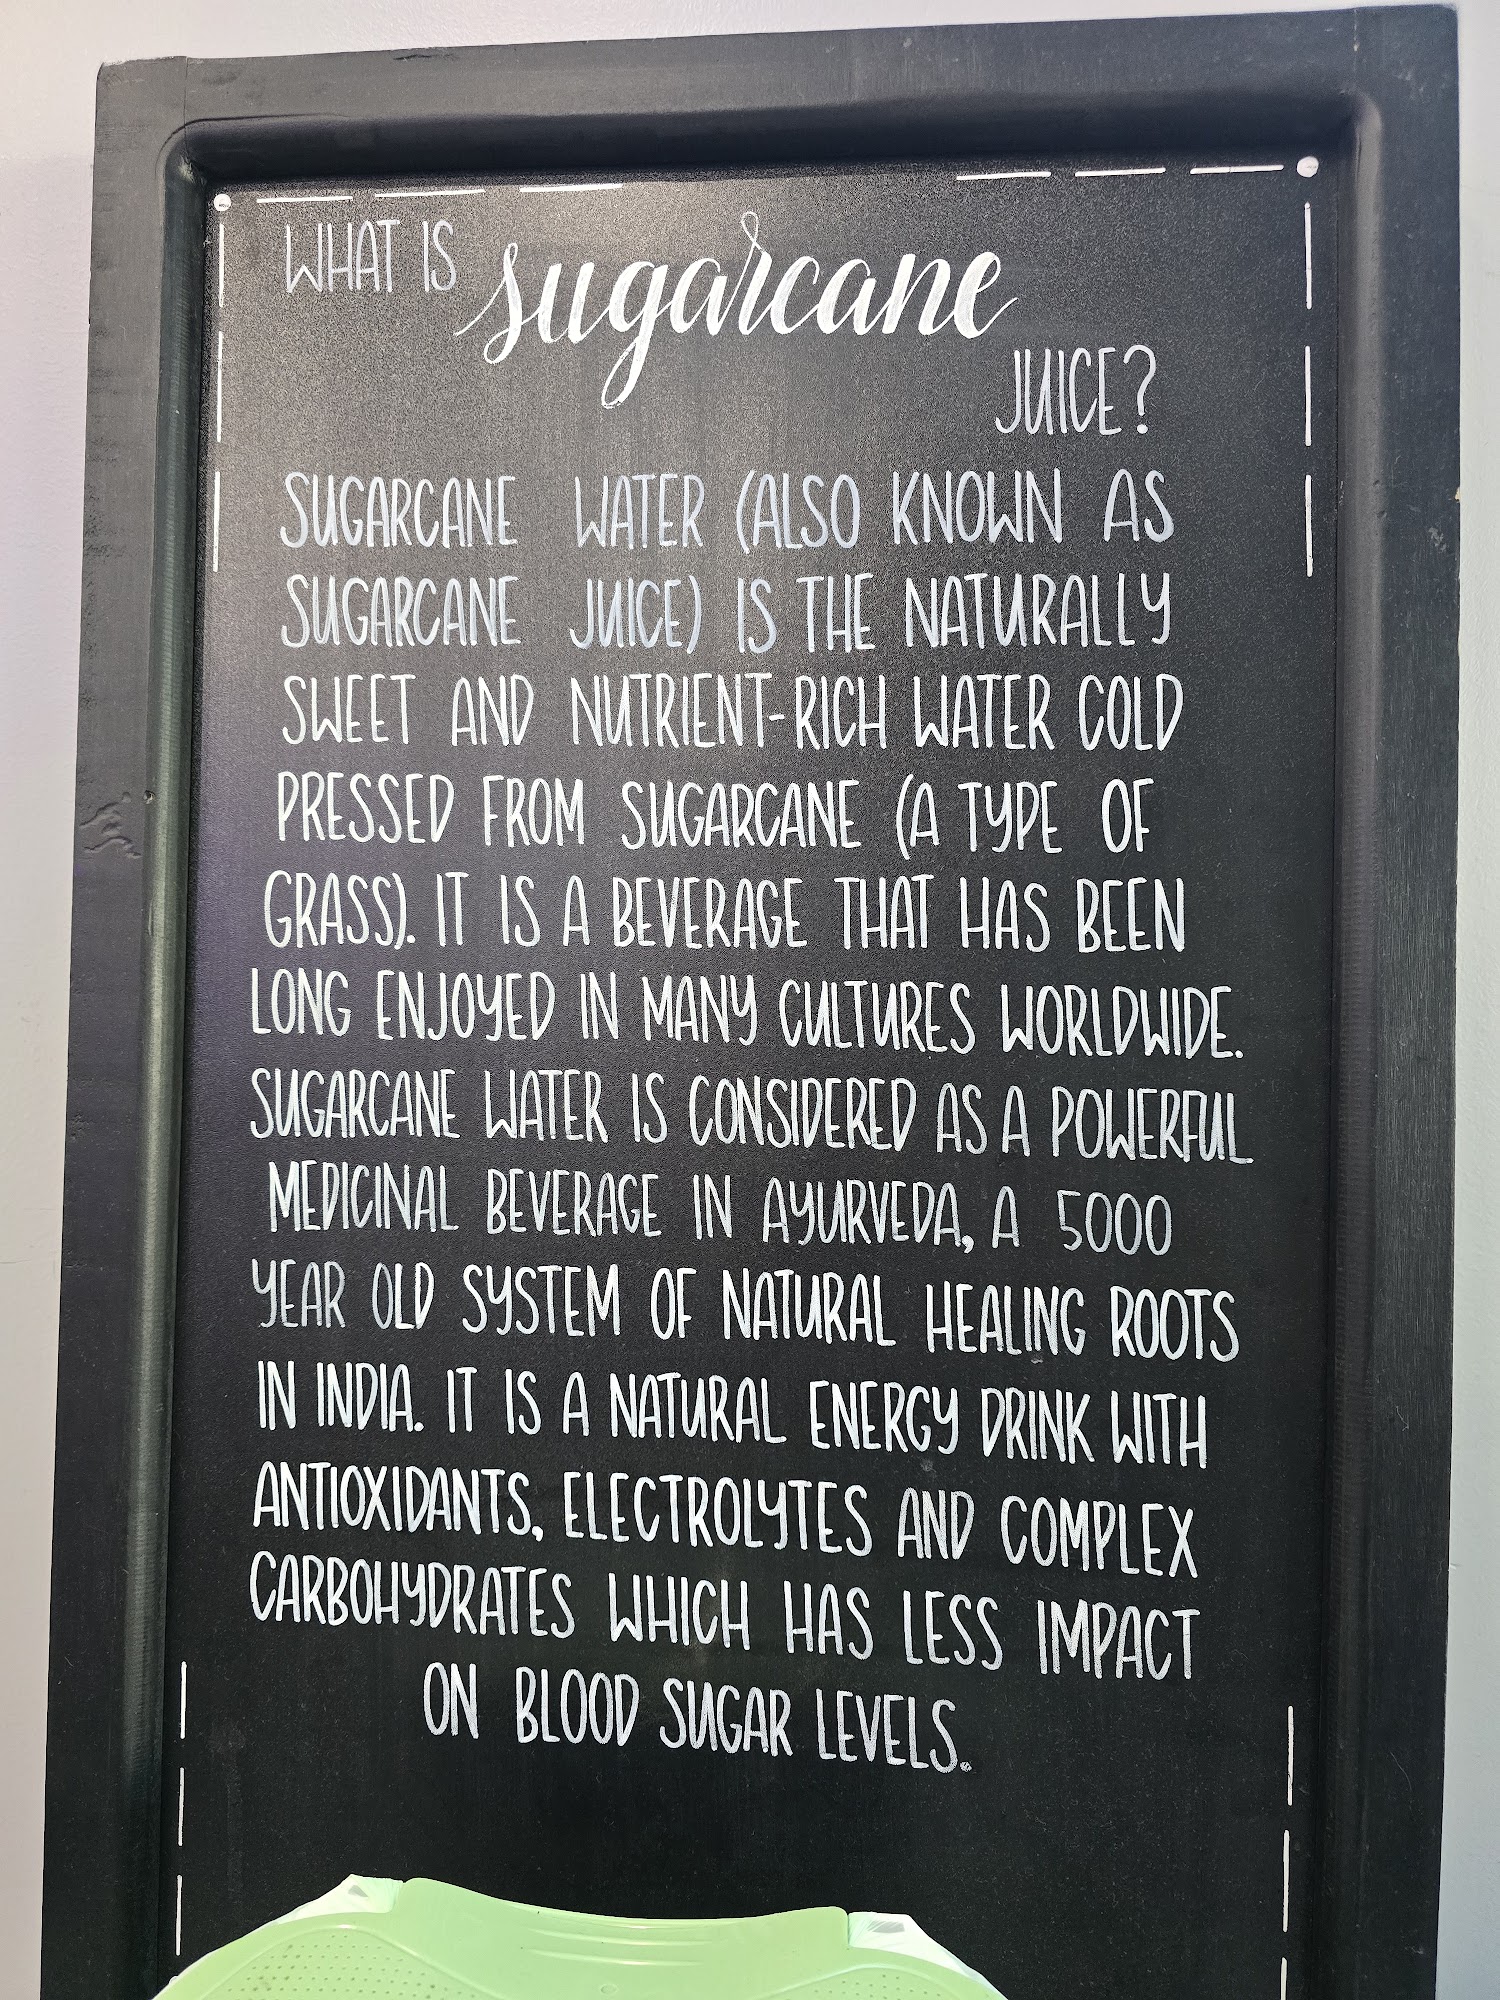 WHAT IS sugarcane
JUICE?
SUGARCANE WATER (ALSO KNOWN AS
SUGARCANE JUICE) IS THE NATURALLY
SWEET AND NUTRIENT-RICH WATER COLD
PRESSED FROM SUGARCANE (A TYPE OF
GRASS). IT IS A BEVERAGE THAT HAS BEEN
LONG ENJOYED IN MANY CULTURES WORLDWIDE.
SUGARCANE WATER IS CONSIDERED AS A POWERFUL
MEDICINAL BEVERAGE IN AYURVEDA, A 5000
YEAR OLD SYSTEM OF NATURAL HEALING ROOTS
IN INDIA. IT IS A NATURAL ENERGY DRINK WITH
ANTIOXIDANTS, ELECTROLYTES AND COMPLEX
CARBOHYDRATES WHICH HAS LESS IMPACT
ON BLOOD SUGAR LEVELS.